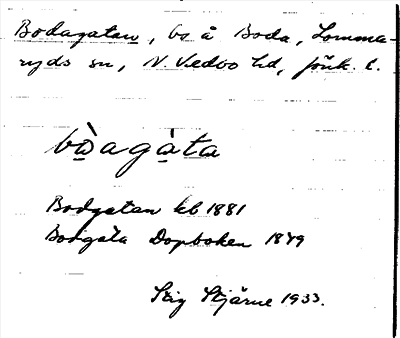 Bodagatan, bs å Boda, Lomma-
ryds sn, N. Vedbo hd, Jönk. l.
bòͅagàͅta
Bodgatan kb 1881
Bodgata Dopboken 1849
Stig Stjärne 1933.